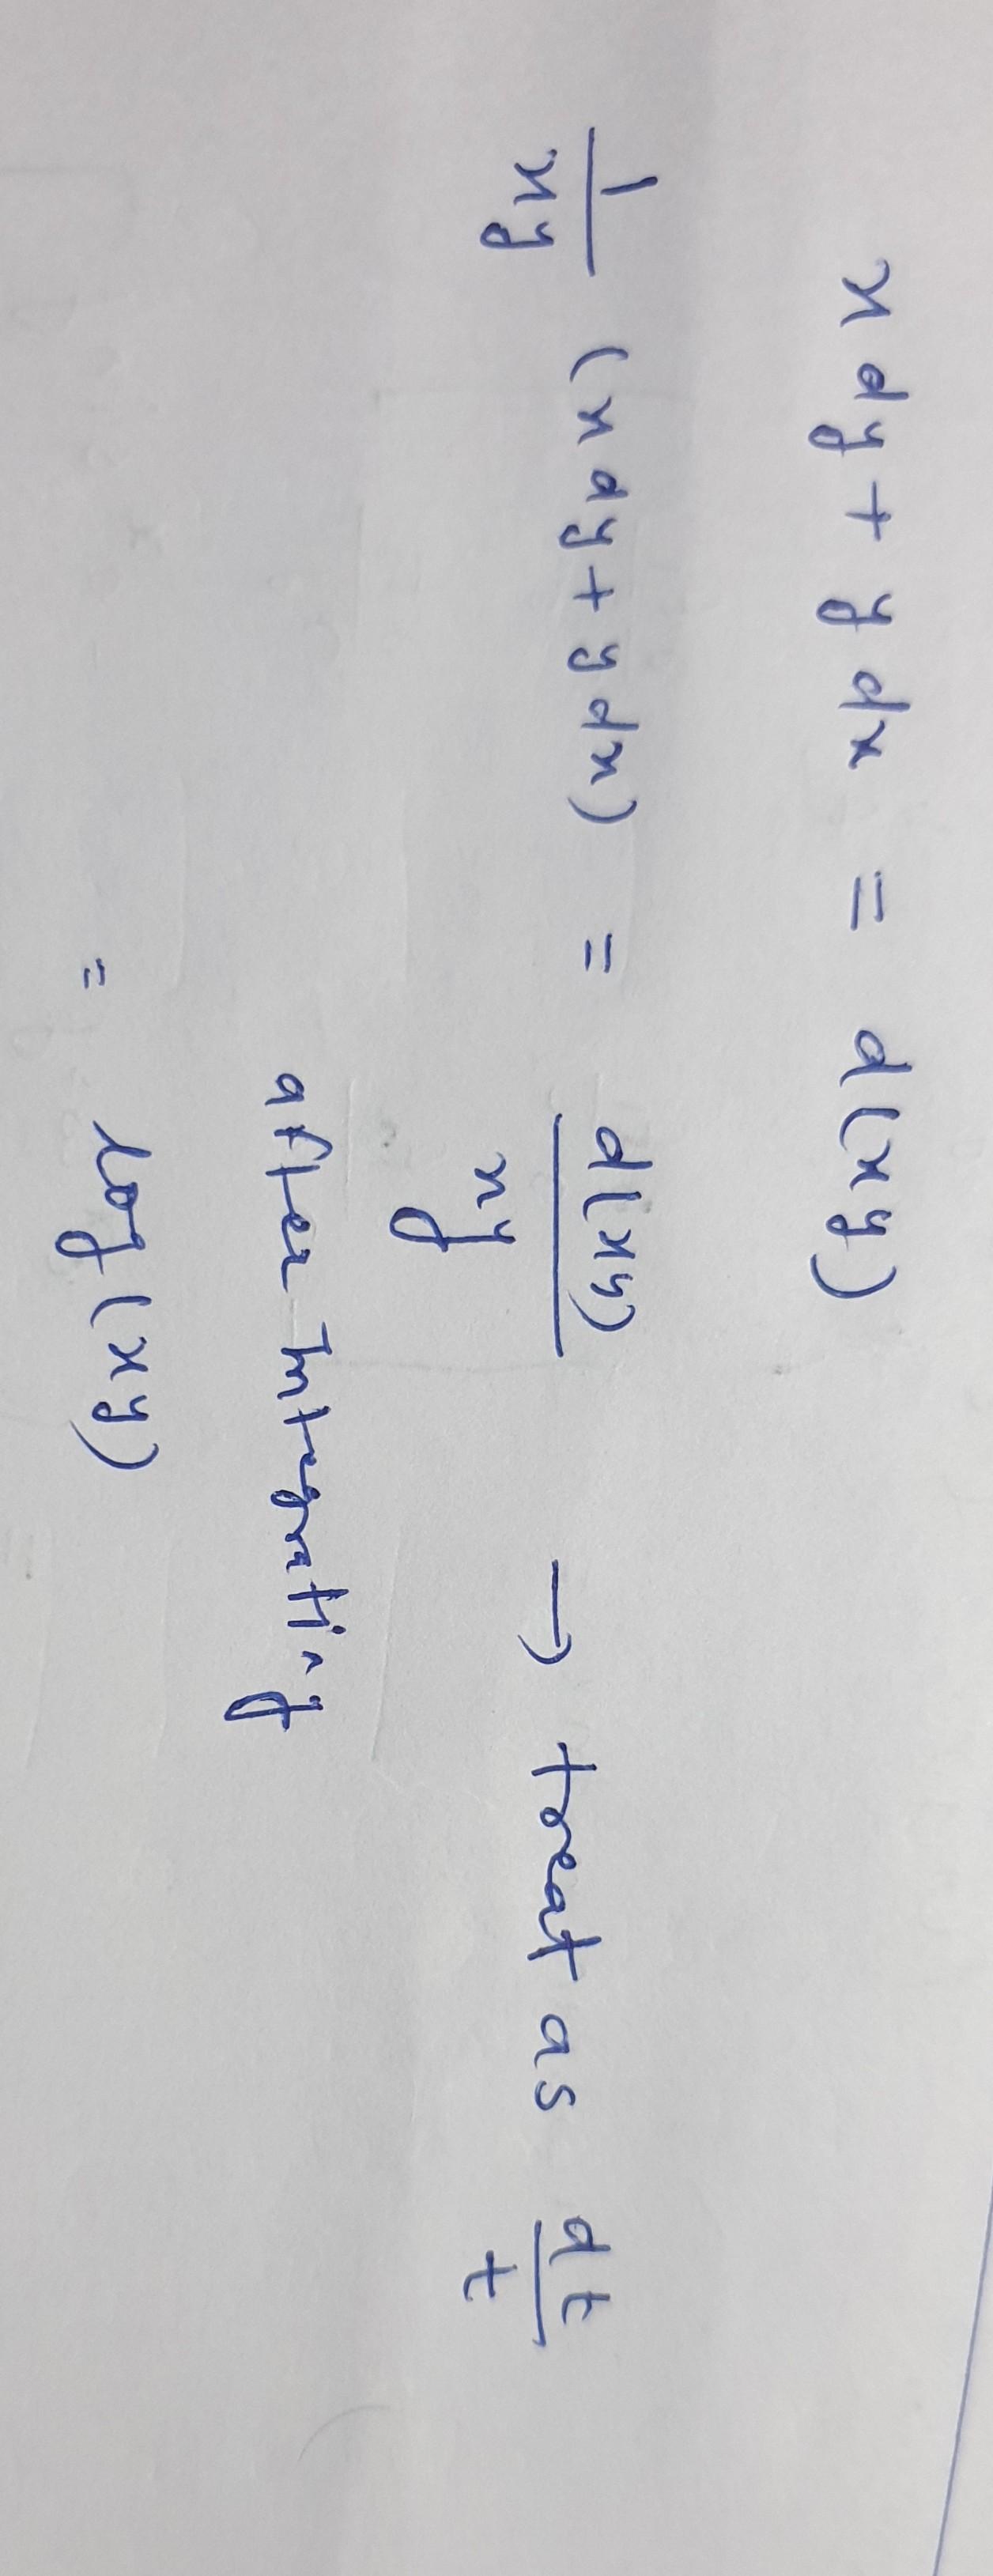 x dy + y dx = d(xy)
1/xy (x dy + y dx) = d(xy)/xy → treat as dt/t
after Integrating
= log(xy)